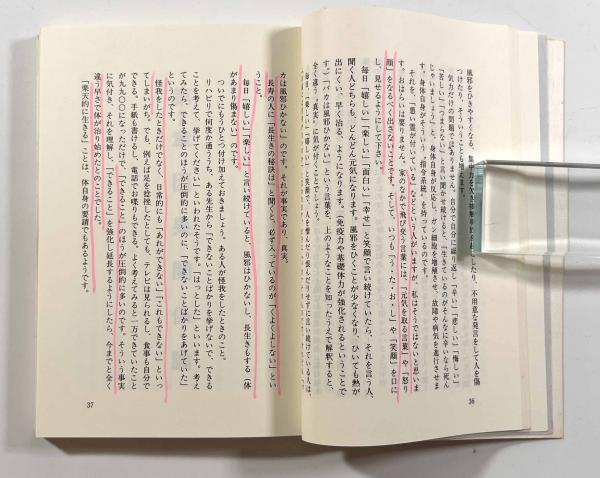 風邪をひきやすくなる、集中力を欠き
したり、不用意な発言をして人を傷
つけたり、そういうことも
気力だけの問題ではありません。自分で自分に繰り返し「辛い」「悲しい」「悔しい」
「苦しい」「つまらない」と言い聞かせ続けると、「生きているのがそんなに辛いなら死ん
じゃいましょうと、身体自身が反応し、ガン細胞を増殖させ、故障や病気を進行させま
す。身体自身がそういう"指令系統"を持っているのです。
それを、「悪い霊が付いている」などという人がいますが、私はそうではないと思いま
す。おはらいは要りません。家のなかで飛び交う言葉には、「元気を取る言葉」や「怒り
顔」をなるべく出さないことです。そして、いつも「う・た・お・し」や「笑顔」を口に
し、見せるようにして下さい。
毎日「嬉しい」「楽しい」「面白い」「幸せ」と笑顔で言い続けていたら、それを言う人、
聞く人どちらも、どんどん元気になります。風邪をひくことが少なくなり、ひいても熱が
出にくい、早く治る、ようになります。（免疫力や基礎体力が強化されるということで
す。）「バカは風邪ひかない」という言葉を、上のようなことを知ったうえで解釈すると、
全く違う"真実"に気が付くことでしょう。
毎日、「楽しい」「嬉しい」と笑顔で、人を憎んだり恨んだりせずに言い続けている人は
36
カは風邪ひかない」のです。それが事実であり、真実。
長寿の人に「長生きの秘訣は」と聞くと、必ず入っているのが「くよくよしない」とい
うこと。
毎日「嬉しい」「楽しい」と言い続けていると、風邪はひかないし、長生きもする（体
があまり傷まない）のです。
ついでにもうひとつ付け加えておきましょう。ある人が怪我をしたときのこと。
リハビリで何度か通ううち、ある先生から「できないことばかりを挙げないで、できる
ことを考えて、挙げてみなさい」といわれたそうです。「はっとした」といいます。考え
てみたら、できることのほうが圧倒的に多いのに、「できないことばかりをあげていた」
というのです。
怪我をしたときだけでなく、日常的にも「あれができない」「これもできない」といっ
てしまいがち。でも、例えば足を捻挫したとしても、テレビは見られるし、食事も自分で
できる。手紙も書けるし、電話でお喋りもできる。よく考えてみると一万できていたこと
が九九〇〇になっただけで、「できること」のほうが圧倒的に多いのです。そういう事実
に気付き、それを理解し、「できること」を強化し延長するようにしたら、今までと全く
違う早さで体が治り始めたとのことでした。
「楽天的に生きる」ことは、体自身の要請でもあるようです。
37